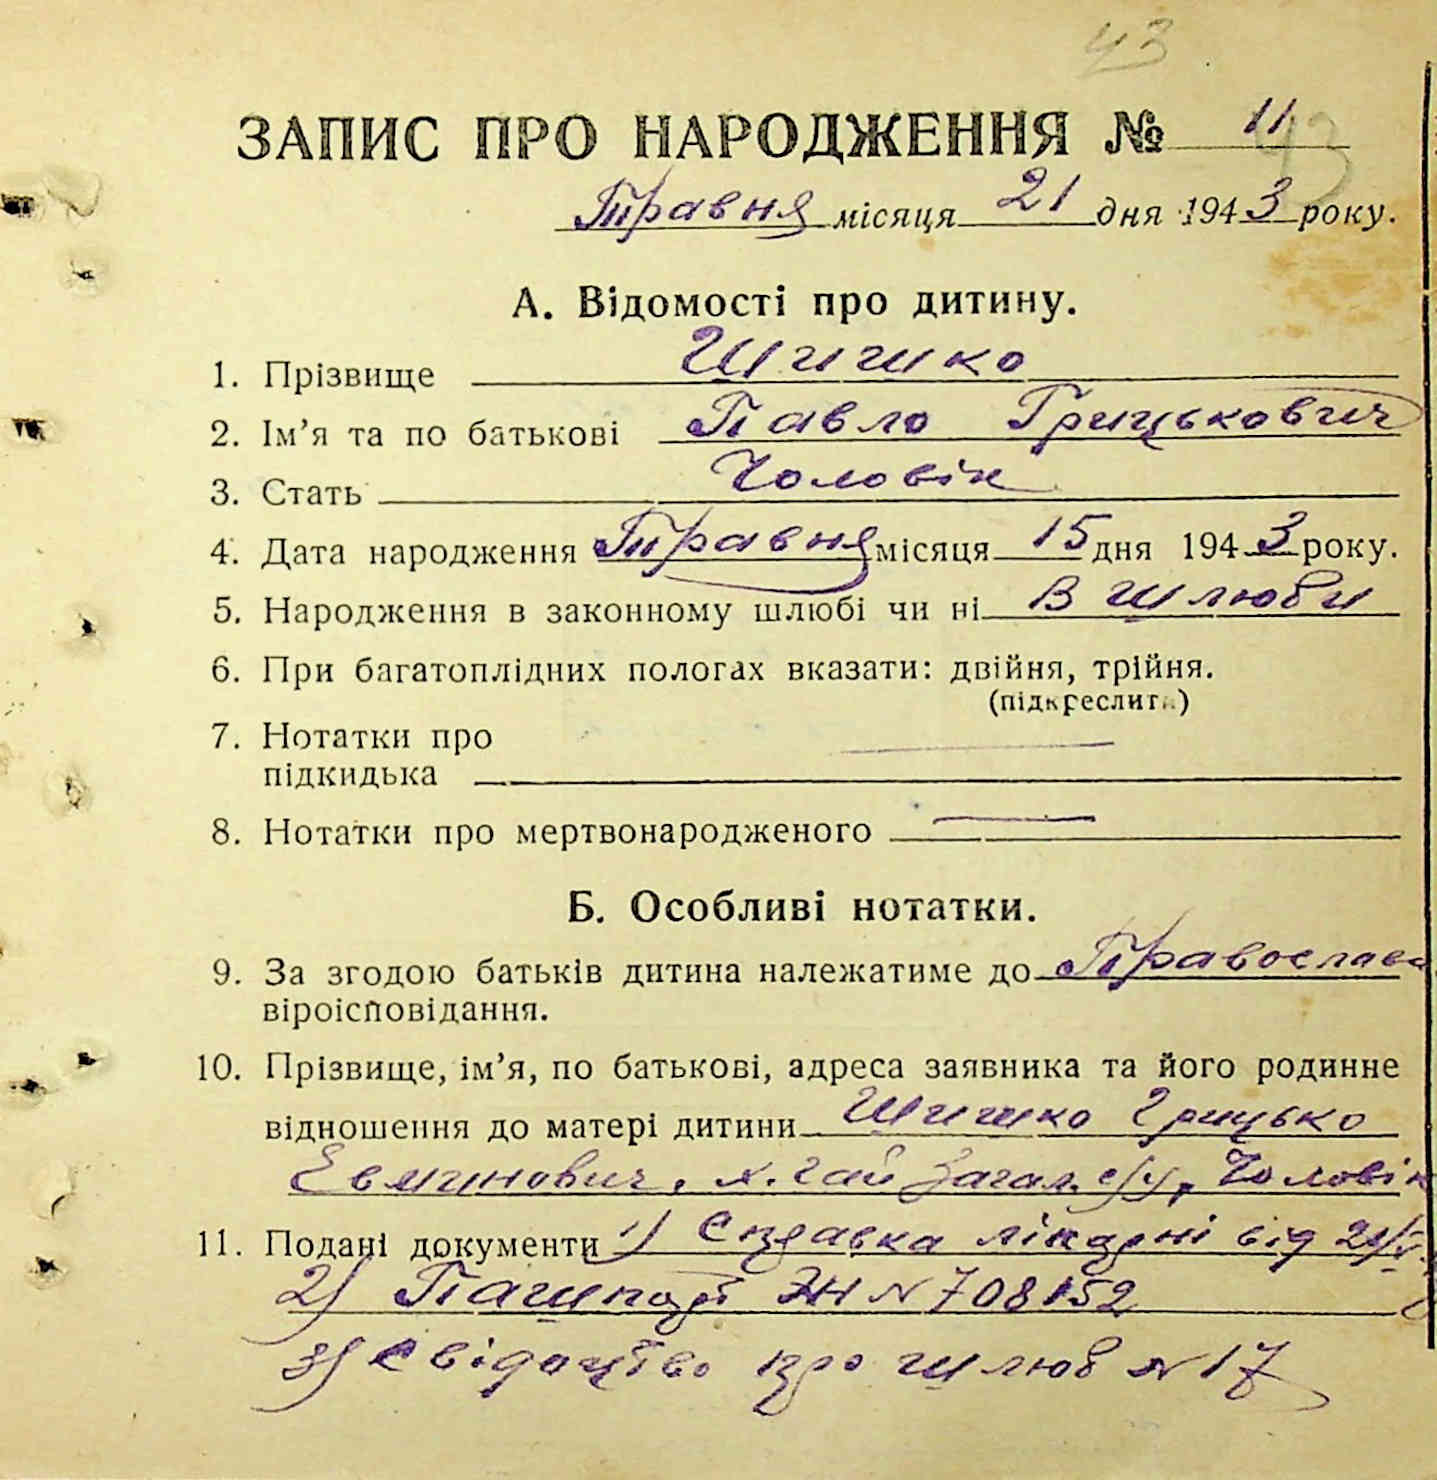 43
ЗАПИС ПРО НАРОДЖЕННЯ № 11
Травня місяця 21 дня 1943 року.
А. Відомості про дитину.
1. Прізвище Шишко
2. Ім’я та по батькові Павло Грицькович
3. Стать Чоловік
4. Дата народження Травня місяця 15 дня 1943 року.
5. Народження в законному шлюбі чи ні В шлюби
6. При багатоплідних пологах вказати: двійня, трійня.
(підкреслити)
7. Нотатки про
підкидька
8. Нотатки про мертвонародженого
Б. Особливі нотатки.
9. За згодою батьків дитина належатиме до Православ
віроісповідання.
10. Прізвище, ім’я, по батькові, адреса заявника та його родинне
відношення до матері дитини Шишко Грицько
х. Гай Загал. с/у, Чоловік
11. Подані документи 1) Справка лікарні від 21/V
2) Пашпорт ЖН № 708152
3) Свідоцтво про шлюб № 17